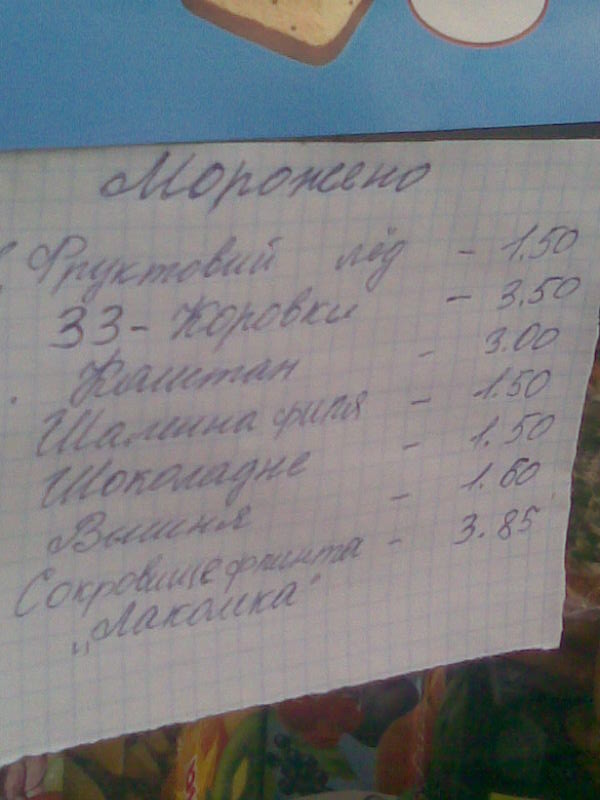 Морожено
Фруктовий лёд - 1.50
33 - Коровки - 3.50
Каштан - 3.00
Шалена филя - 1.50
Шоколадне - 1.50
Вишня - 1.60
Сокровище флинта - 3.85
„Лакомка"